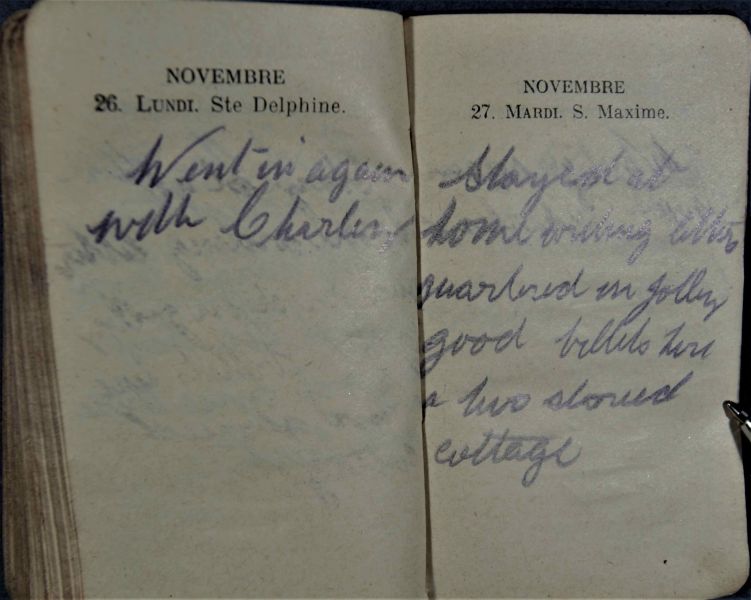 NOVEMBRE
26. LUNDI. Ste Delphine.
Went in again
with Charley
NOVEMBRE
27. MARDI. S. Maxime.
Stayed at
home writing letters
quartered in jolly
good billets here
a two storied
cottage